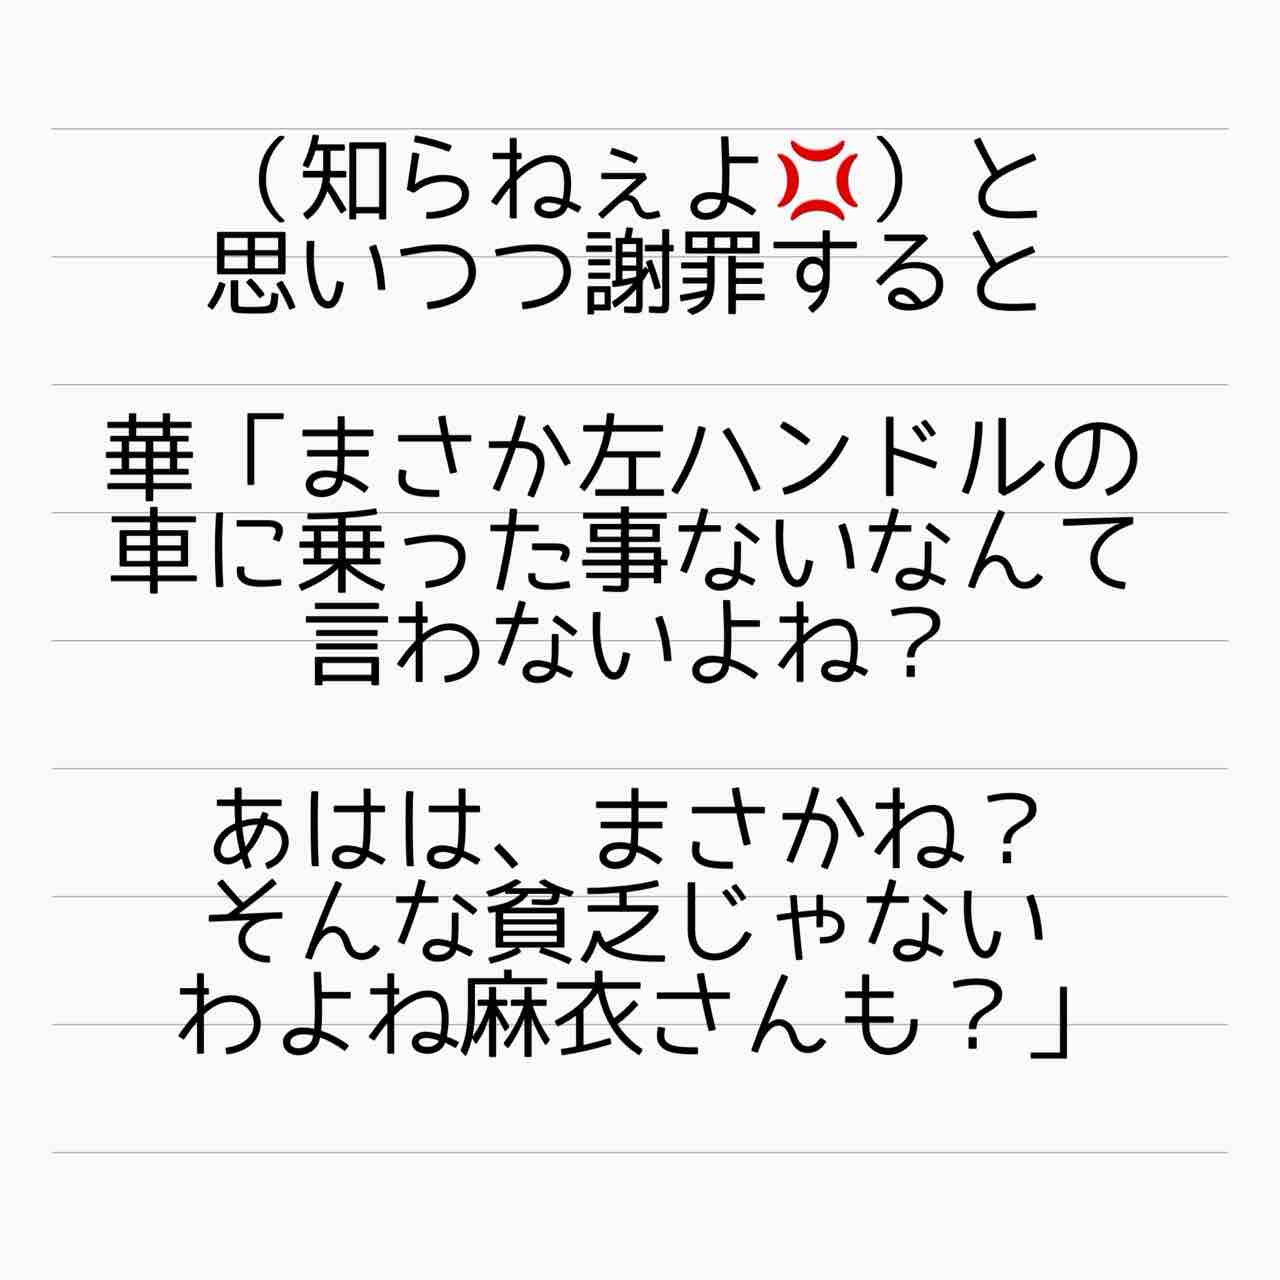 （知らねぇよ💢）と
思いつつ謝罪すると
華「まさか左ハンドルの
車に乗った事ないなんて
言わないよね？
あはは、まさかね？
そんな貧乏じゃない
わよね麻衣さんも？」